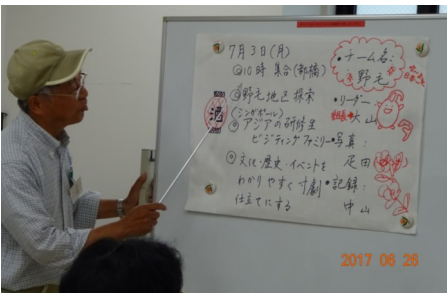 7月3日(月)
◎10時 集合(都橋)
◎野毛地区探索
酒
(シンガポール)
◎アジアの研修生
ビジティングファミリー
◎文化・歴史・イベントを
わかりやすく寸劇
仕立てにする
・チーム名:
野毛
・リーダー
大山
・写真:
疋田
・記録:
中山
2017 06 26